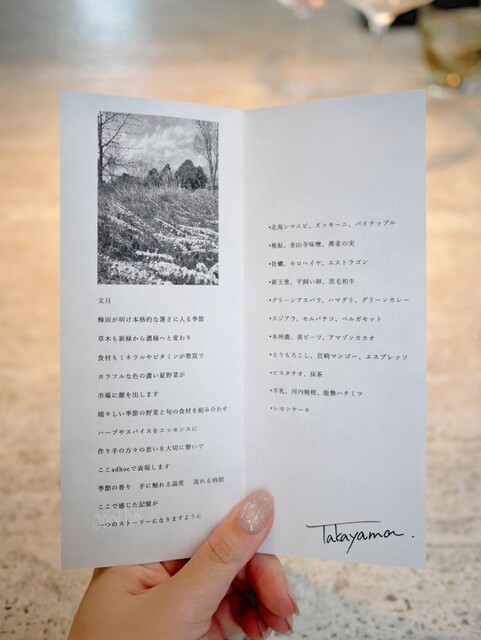 文月
梅雨が明け本格的な暑さに入る季節
草木も新緑から濃緑へと変わり
食材もミネラルやビタミンが豊富で
カラフルな色の濃い夏野菜が
市場に顔を出します
瑞々しい季節の野菜と旬の食材を組み合わせ
ハーブやスパイスをエッセンスに
作り手の方々の思いを大切に繋いで
ここadhocで表現します
季節の香り 手に触れる温度 流れる時間
ここで感じた記憶が
一つのストーリーになりますように
•北海シマエビ、ズッキーニ、パイナップル
•稚鮎、金山寺味噌、蕎麦の実
•牡蠣、モロヘイヤ、エストラゴン
•新玉葱、平飼い卵、黒毛和牛
•グリーンアスパラ、ハマグリ、グリーンカレー
•スジアラ、セルバチコ、ベルガモット
•本州鹿、黄ビーツ、アマゾンカカオ
•とうもろこし、宮崎マンゴー、エスプレッソ
•ピスタチオ、抹茶
•羊乳、河内晩柑、能勢ハチミツ
•レモンケーキ
Takayama.